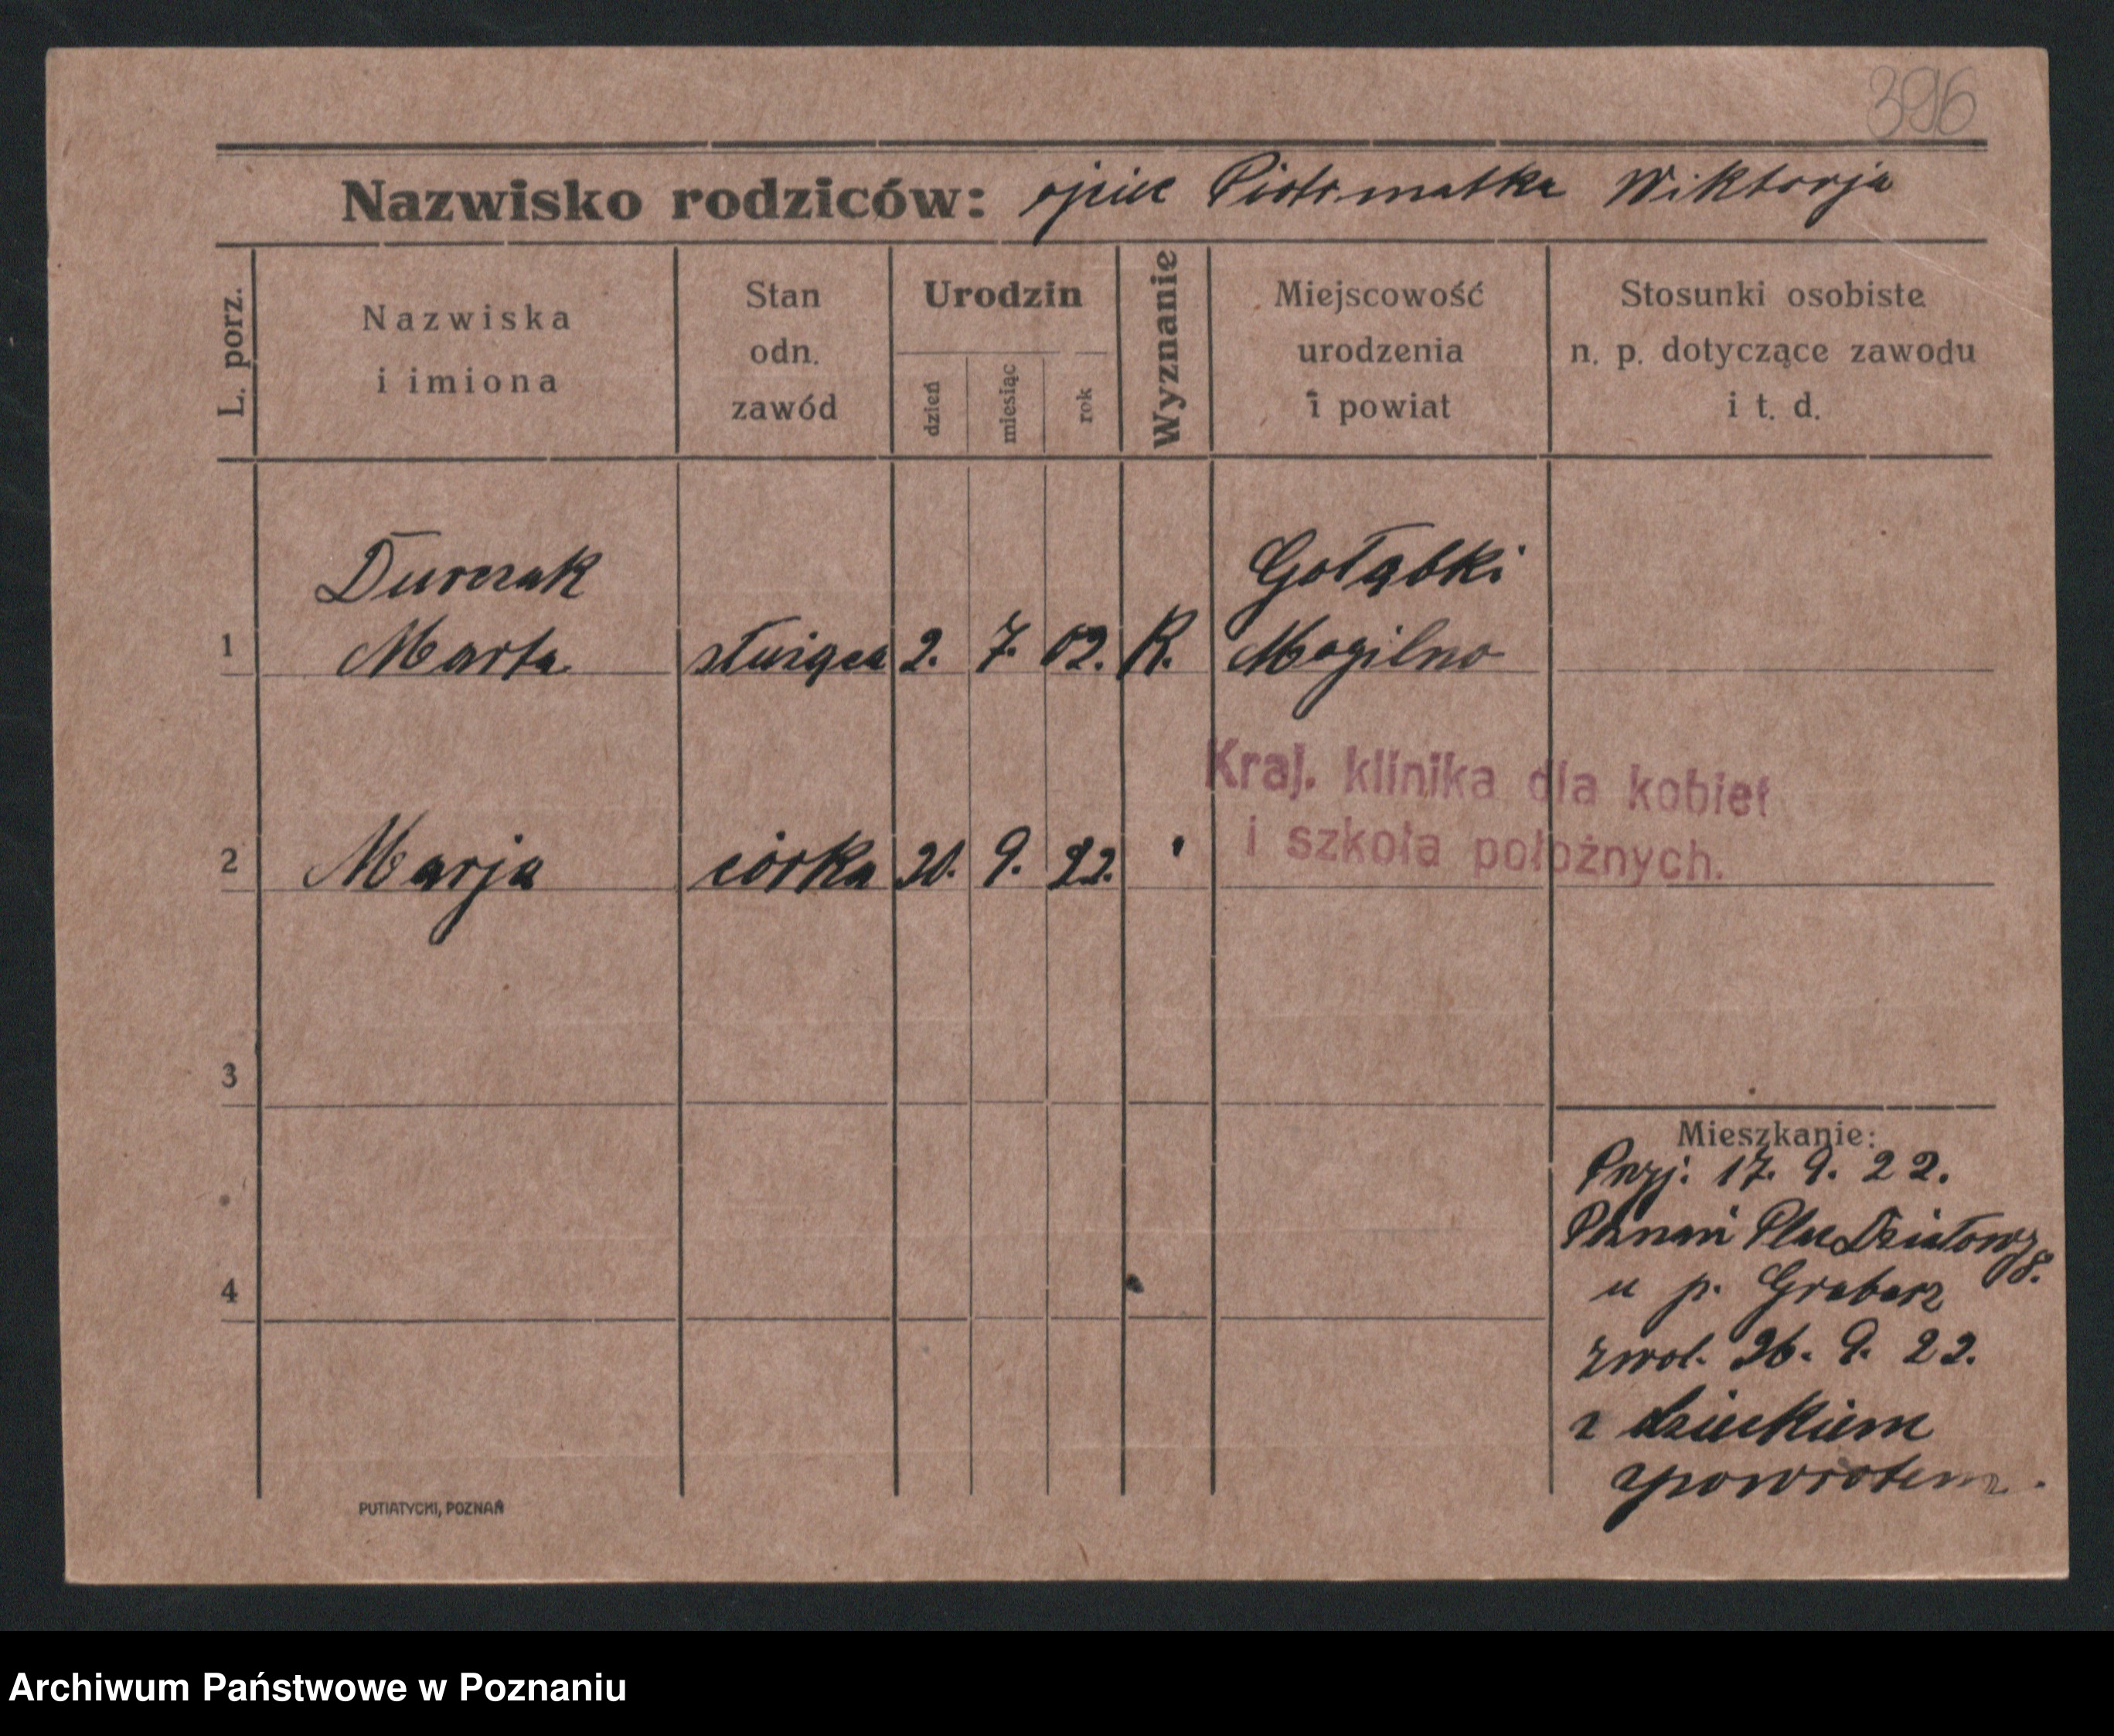 396
Nazwisko rodziców: ojciec Piotr. matka Wiktorja
L. porz.
Nazwiska
i imiona
Stan
odn.
zawód
Urodzin
dzień
miesiąc
rok
Wyznanie
Miejscowość
urodzenia
i powiat
Stosunki osobiste
n. p. dotyczące zawodu
i t. d.
Durczak
Gołąbki
1 Marta służąca 2. 7. 02. R. Mogilno
Kraj. klinika dla kobiet
i szkoła położnych.
2 Marja córka 9. 22.
3
4
Mieszkanie:
Przj. 17. 9. 22.
Poznań Plac Działowy 8.
u p. Grabarz
zwol. 26. 9. 22.
z dzieckiem
zpowrotem.
PUTIATYCKI, POZNAŃ
Archiwum Państwowe w Poznaniu